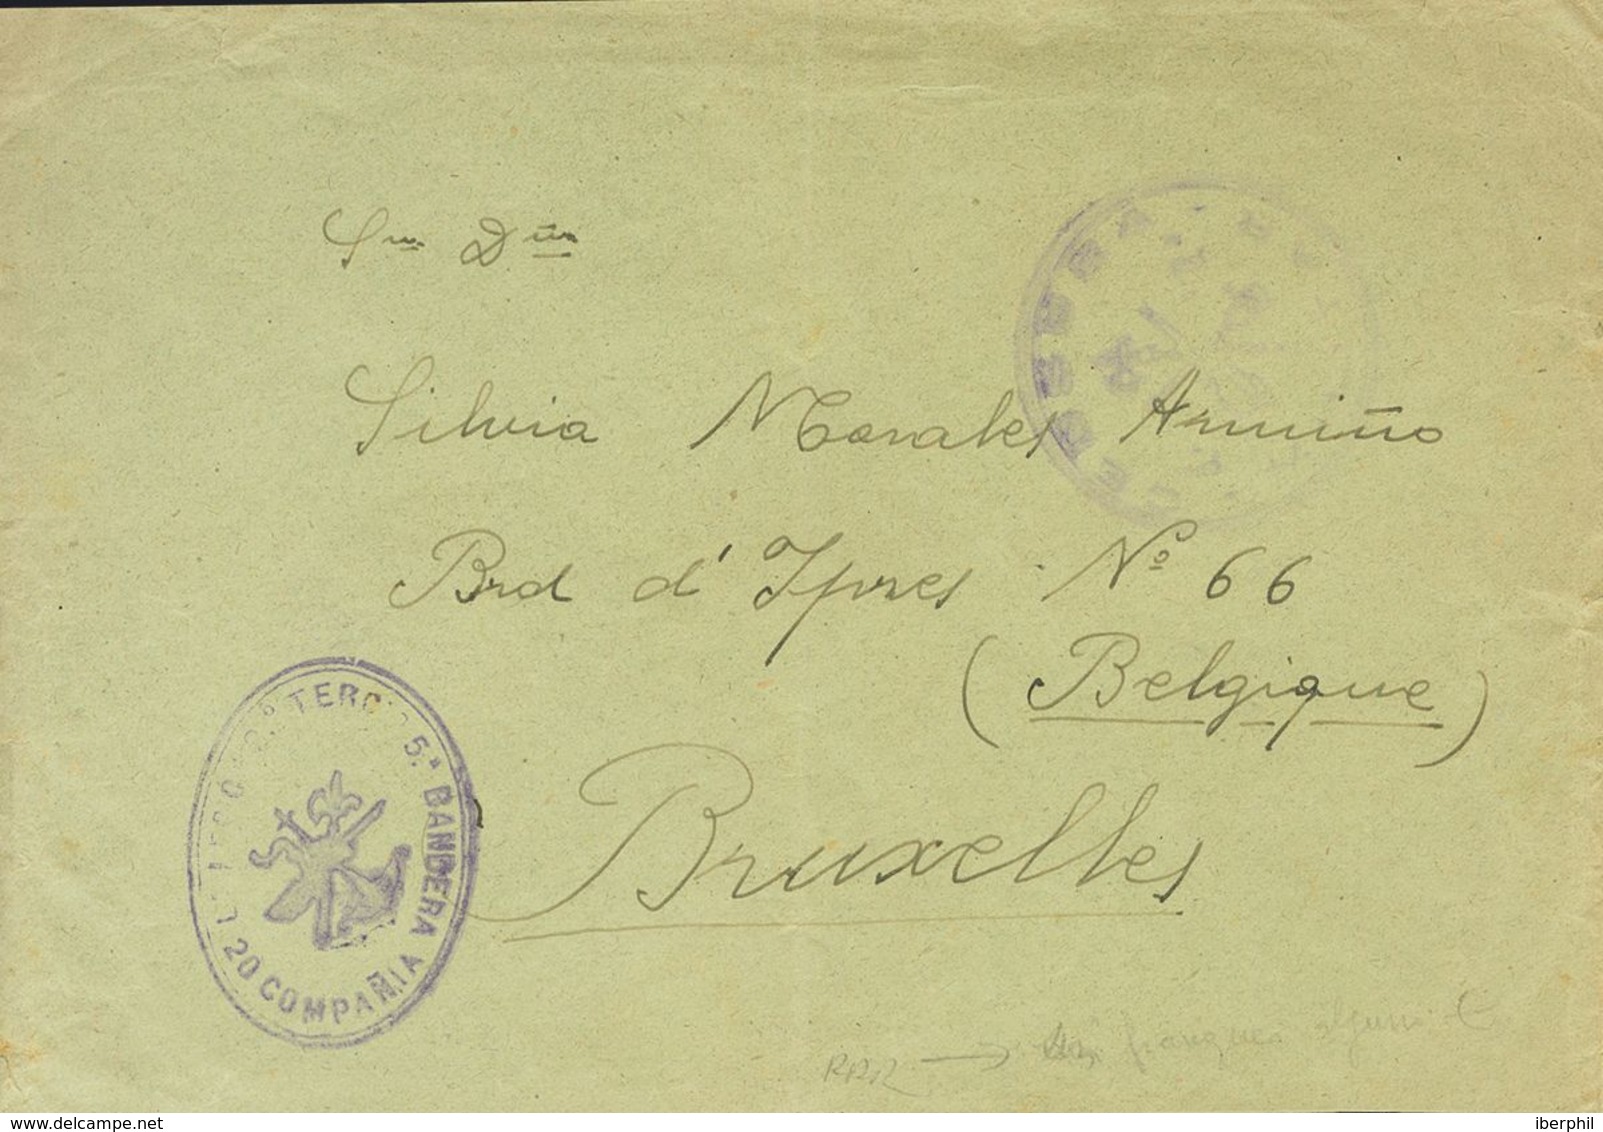 Sra Dña
Silvia Morales Armiño
Brd d'Ypres Nº 66
(Belgique)
Bruxelles
CENSURA
TERCIO 5.ª BANDERA
20 COMPAÑIA
franqueo alguno
delcampe.net
iberphil